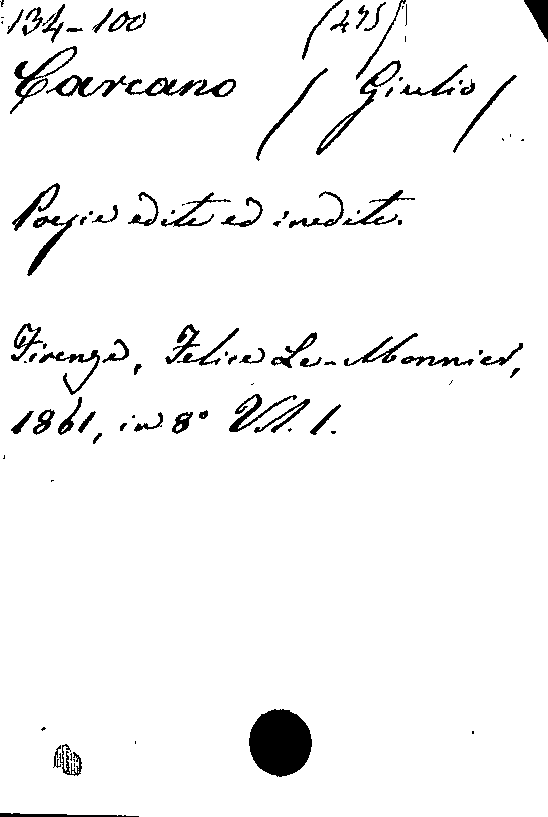 134-100 (275)
Carcano (Giulio)
Poesie edite ed inedite.
Firenze, Felice Le-Monnier,
1861, in 8° Vol. 1.